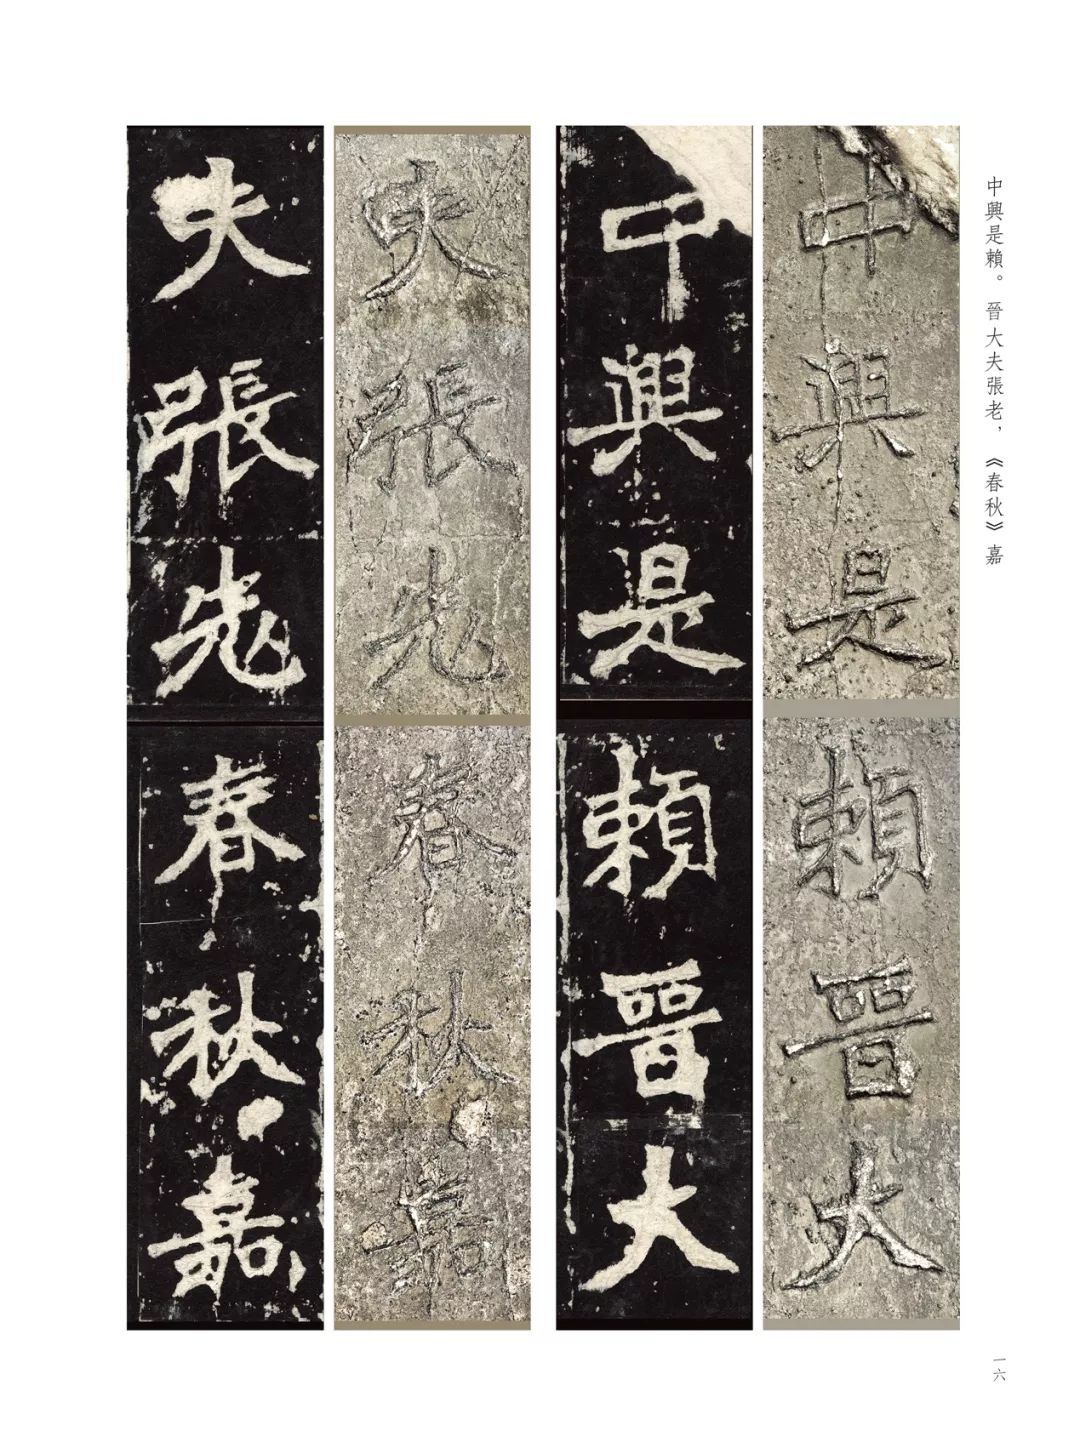 中興是賴。晉大夫張老，《春秋》嘉
中興是賴晉大
中興是賴晉大
夫張老春秋嘉
夫張老春秋嘉
一六